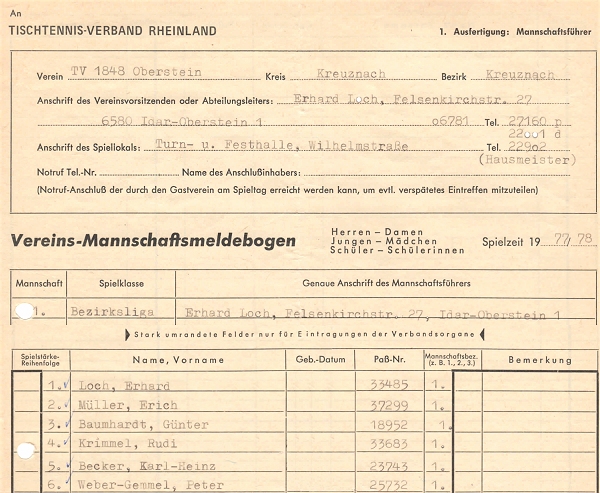 An
TISCHTENNIS-VERBAND RHEINLAND
1. Ausfertigung: Mannschaftsführer
Verein TV 1848 Oberstein Kreis Kreuznach Bezirk Kreuznach
Anschrift des Vereinsvorsitzenden oder Abteilungsleiters: Erhard Loch, Felsenkirchstr. 27
6580 Idar-Oberstein 1 06781 Tel. 27160 p
22001 d
Anschrift des Spiellokals: Turn- u. Festhalle, Wilhelmstraße Tel. 22902
(Hausmeister)
Notruf Tel.-Nr. Name des Anschlußinhabers:
(Notruf-Anschluß der durch den Gastverein am Spieltag erreicht werden kann, um evtl. verspätetes Eintreffen mitzuteilen)
Vereins-Mannschaftsmeldebogen
Herren – Damen
Jungen – Mädchen
Schüler – Schülerinnen
Spielzeit 19 77/78
Mannschaft Spielklasse Genaue Anschrift des Mannschaftsführers
1. Bezirksliga Erhard Loch, Felsenkirchstr. 27, Idar-Oberstein 1
Stark umrandete Felder nur für Eintragungen der Verbandsorgane
Spielstärke-Reihenfolge Name, Vorname Geb.-Datum Paß-Nr. Mannschaftsbez. (z. B. 1., 2., 3.) Bemerkung
1. Loch, Erhard 33485 1.
2. Müller, Erich 37299 1.
3. Baumhardt, Günter 18952 1.
4. Krimmel, Rudi 33683 1.
5. Becker, Karl-Heinz 23743 1.
6. Weber-Gemmel, Peter 25732 1.